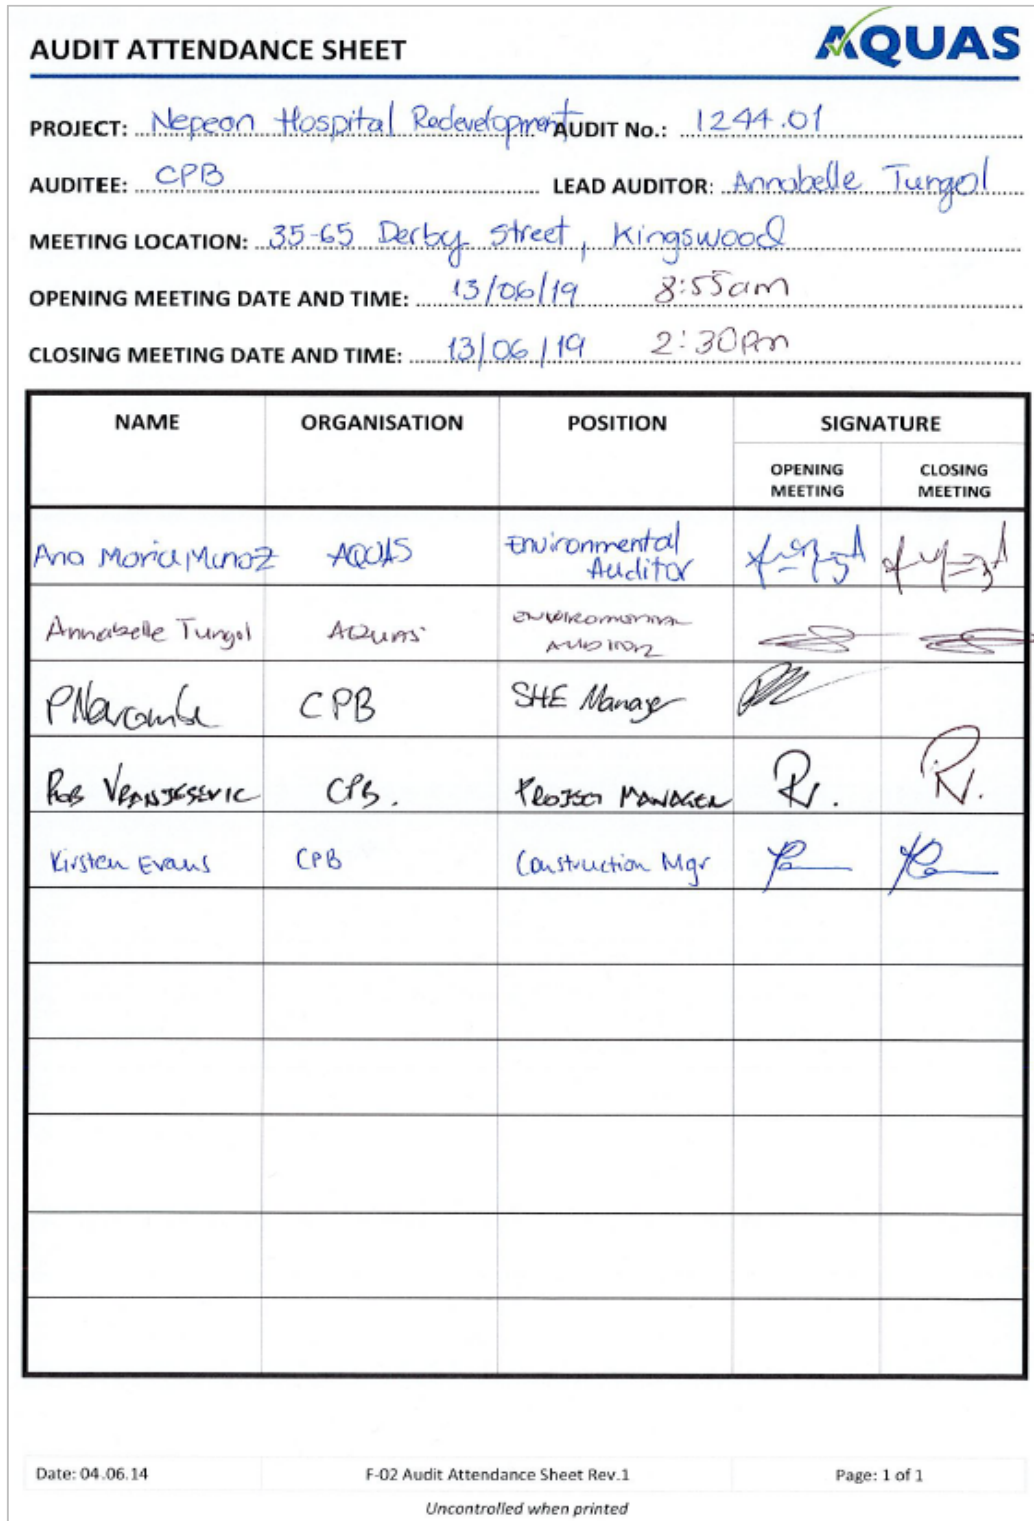 AUDIT ATTENDANCE SHEET
AQUAS
PROJECT: Nepean Hospital Redevelopment AUDIT No.: 1244.01
AUDITEE: CPB LEAD AUDITOR: Annabelle Tungol
MEETING LOCATION: 35-65 Derby Street, Kingswood
OPENING MEETING DATE AND TIME: 13/06/19 8:55am
CLOSING MEETING DATE AND TIME: 13/06/19 2:30pm
NAME ORGANISATION POSITION SIGNATURE
OPENING MEETING CLOSING MEETING
Ana Maria Munoz AQUAS Environmental Auditor
Annabelle Tungol AQUAS ENVIRONMENTAL AUDITOR
CPB SHE Manager
ROB VRANJESEVIC CPB. PROJECT MANAGER
Kirsten Evans CPB Construction Mgr
Date: 04.06.14 F-02 Audit Attendance Sheet Rev.1 Page: 1 of 1
Uncontrolled when printed